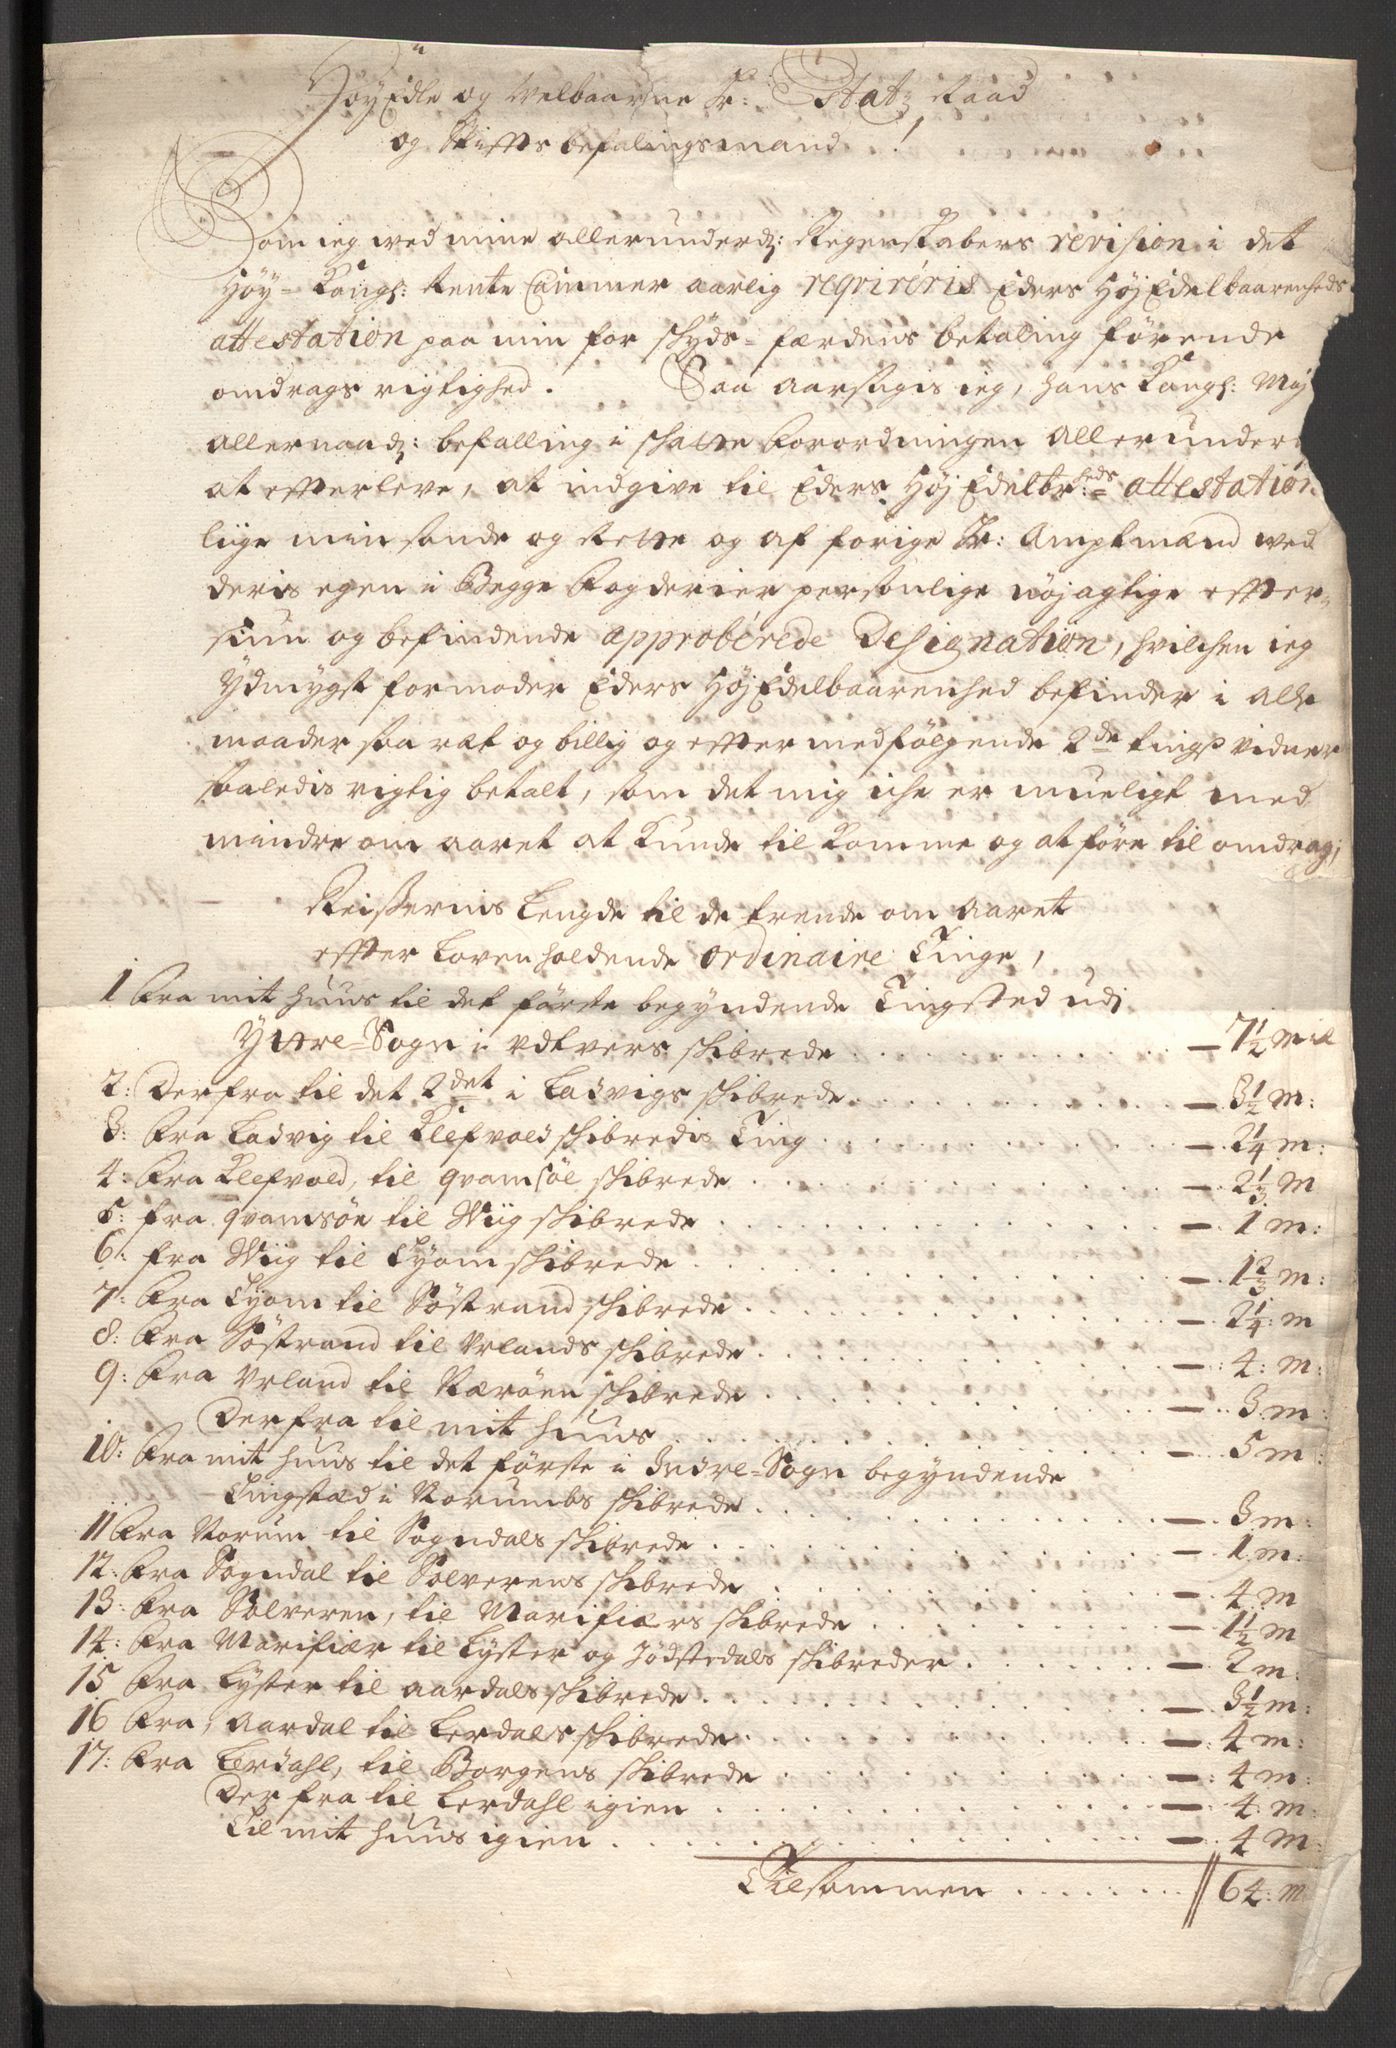 HøyEdle og Velbaarne Hr: Etatz Raad
og Stiftsbefalingsmand!
Som ieg ved mine allerunderd: Regenskabers revision i det
Høy-Kongl: Rente Cammer aarlig reqvireris Eders HøjEdelbaarenheds
attestation paa min for skyds-færdens betaling førende
omdrags rigtighed. Saa aarsagis ieg, hans Kongl: May
allernaad: befalling i skatte Forordningen allerunder
at efterleve, at indgive til Eders HøjEdelbr:heds attestation
liige min sande og Rette og af forige Hr: Amptmænd ved
deris egen i Begge Fogderier personlige nøjagtige efter-
siun og befindende approberede Designation, hvilchen ieg
Ydmygst formoder Eders HøjEdelbaarenhed befinder i alle
maader saa ræt og billig og efter medfølgende 2de tings vidner
saaledis rigtig betalt, som det mig iche er mueligt med
mindre om aaret at kunde til komme og at føre til omdrag;
Reisernis Lengde til de trende om Aaret
efter Loven holdende ordinaire Tinge,
1 Fra mit huus til det første begyndende Tingsted udj
Yttre-Sogn i Udvers skibrede . . . — 7 1/2 mil
2: Derfra til det 2det i Ladvigs skibrede . . . — 3 1/2 m:
3: Fra Ladvig til Klefvold skibredis Ting . . . — 2 1/4 m:
4: Fra Klefvold, til qvamsøe skibrede . . . — 2 1/3 m
5: fra qvamsøe til Wiig skibrede . . . — 1 m:
6: fra Wiig til Tyom skibrede . . . — 1 2/3 m:
7: Fra Tyom til Søstrand skibrede . . . — 2 1/4: m
8: Fra Søstrand til Urlands skibrede . . . — : 4: m:
9: Fra Urland til Nærøen skibrede . . . — 3 m:
Derfra til mit huus . . . — 5 m:
10: Fra mit huus til det første i Indre-Sogn begyndende
Tingstæd i Norumbs skibrede . . . — 3 m:
11 Fra Norum til Sogndals skibrede . . . — 1 m:
12: Fra Sogndal til Solverens skibrede . . . — 4 m
13: Fra Solveren, til Marifiærs skibrede . . . — 1 1/2 m
14: Fra Marifiær til Lyster og Jodstedals skibreder . . . — 2 m:
15 Fra Lyster til Aardals skibrede . . . — 3 1/2 m:
16 Fra, Aardal til Lerdals skibrede . . . — 4 m:
17: Fra Lerdahl, til Borgens skibrede . . . — : 4 m:
Der fra til Lerdahl igien . . . — : 4: m:
Til mit huus igien . . . — : 4 m:
Tilsammen . . . 64: m